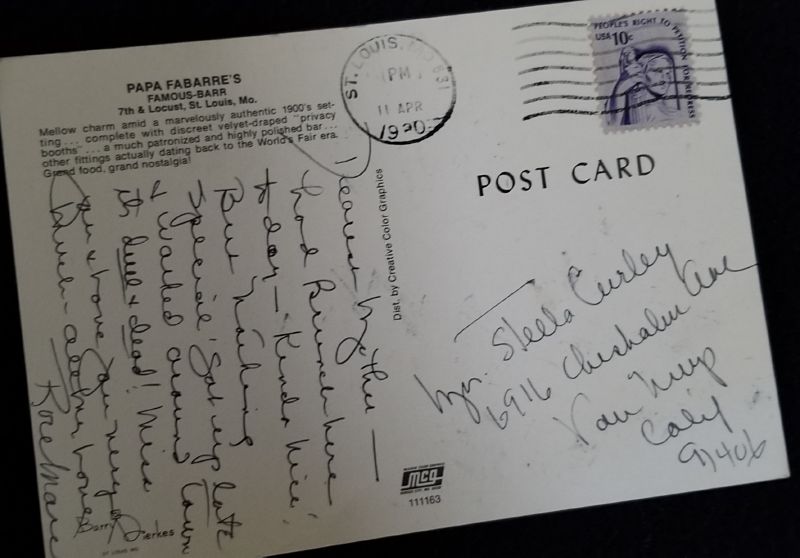 PAPA FABARRE'S
FAMOUS-BARR
7th & Locust, St. Louis, Mo.
Mellow charm amid a marvelously authentic 1900's set-
ting... complete with discreet velvet-draped "privacy
booths"... a much patronized and highly polished bar...
other fittings actually dating back to the World's Fair era.
Grand food, grand nostalgia!
Dearest Mother —
had Brunch here
today — Kinda nice!
But nothing
special. Sat up late
& walked around town
its dull & dead! Miss
you & love you very
much – all my love
Rose Marie
Barry Dierkes
Dist. by Creative Color Graphics
MCG
111163
ST. LOUIS, MO 631
PM
11 APR
1980
PEOPLE'S RIGHT TO PETITION FOR REDRESS
USA 10c
POST CARD
Mrs. Stella Curley
6916 Chisholm Ave
Van Nuys
Calif
91406